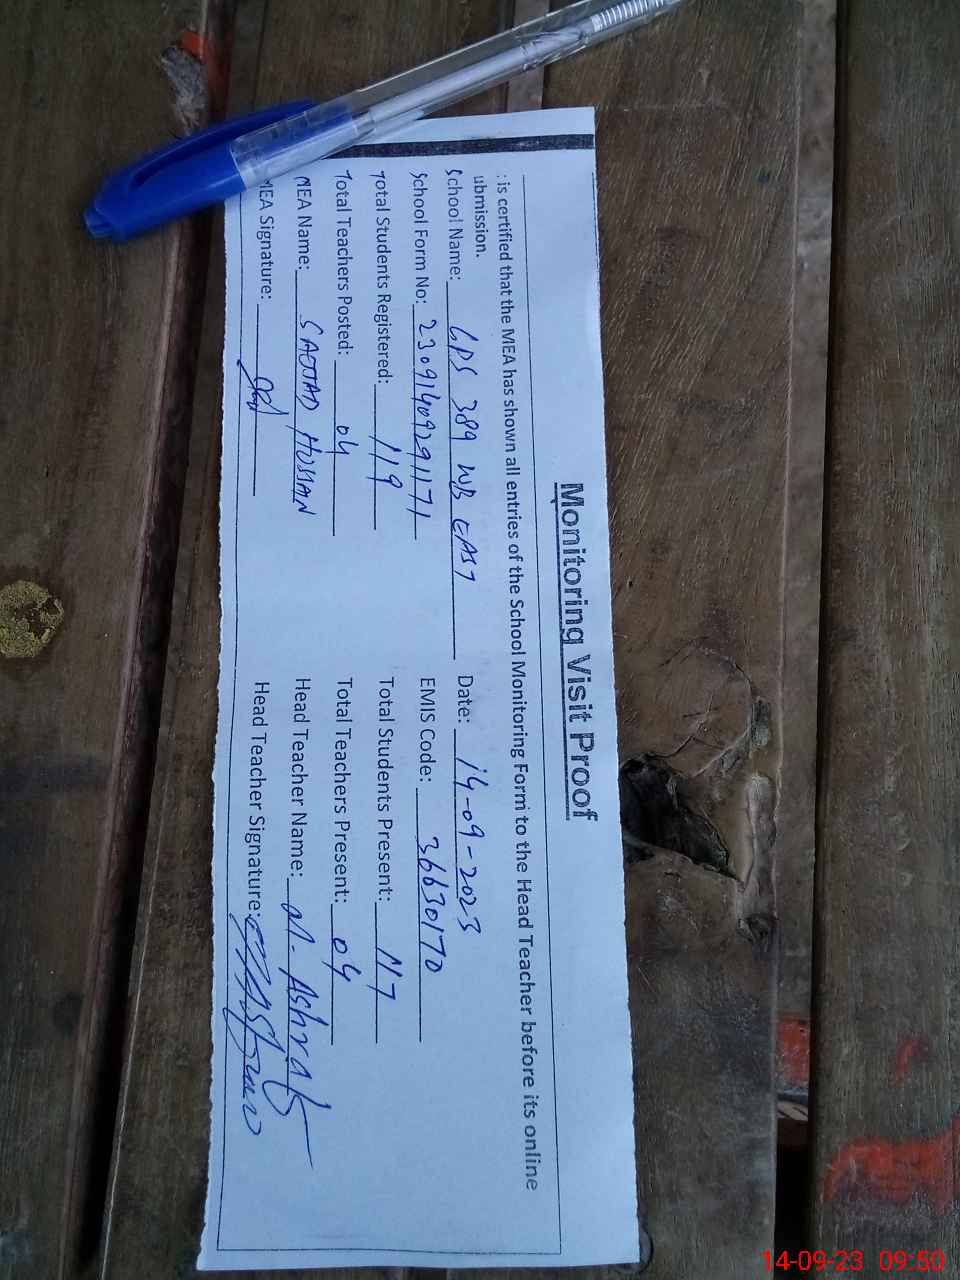 Monitoring Visit Proof
: is certified that the MEA has shown all entries of the School Monitoring Form to the Head Teacher before its online
ubmission.
School Name: GPS 389 WB EAST Date: 14-09-2023
School Form No: 23091409291171 EMIS Code: 36630170
Total Students Registered: 119 Total Students Present: 117
Total Teachers Posted: 04 Total Teachers Present: 04
MEA Name: SAJJAD HUSSAIN Head Teacher Name: M. Ashraf
MEA Signature: Head Teacher Signature:
14-09-23 09:50